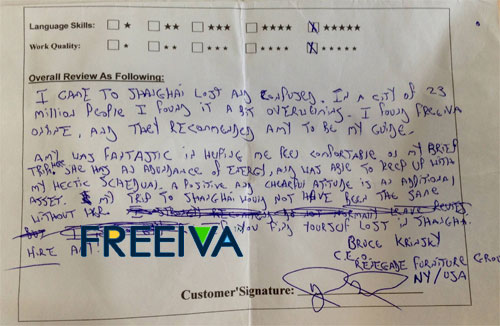 Language Skills: ★ ★★ ★★★ ★★★★ ★★★★★
Work Quality: ★ ★★ ★★★ ★★★★ ★★★★★
Overall Review As Following:
I CAME TO SHANGHAI LOST AND CONFUSED. IN A CITY OF 23
MILLION PEOPLE I FOUND IT A BIT OVERWHELMING. I FOUND FREEIVA
ONLINE, AND THEY RECOMMENDED AMY TO BE MY GUIDE.
AMY WAS FANTASTIC IN HELPING ME FEEL COMFORTABLE ON MY BRIEF
TRIP. SHE HAS AN ABUNDANCE OF ENERGY, AND WAS ABLE TO KEEP UP WITH
MY HECTIC SCHEDUAL. A POSITIVE AND CHEARFUL ATTITUDE IS AN ADDITIONAL
ASSET. MY TRIP TO SHANGHAI WOULD NOT HAVE BEEN THE SAME
WITHOUT HER.
YOU FIND YOURSELF LOST IN SHANGHAI.
HIRE
FREEIVA
BRUCE KRINSKY
C.E.O.
RENEGADE FURNITURE GROUP
NY/USA
Customer'Signature: